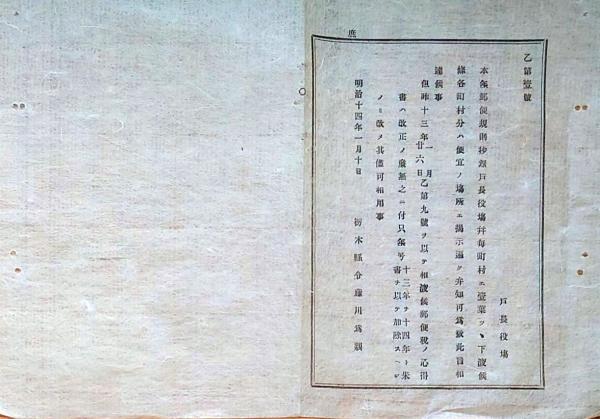 庶
乙第壹號
戸長役塲
本年郵便規則抄録戸長役塲并毎町村エ壹葉ツヽ下渡候
條各町村分ハ便宜ノ塲所エ掲示遍ク弁知可爲致此旨相
達候事
但昨十三年一月廿六日乙第九號ヲ以テ相渡候郵便税ノ心得
書ハ改正ノ廉無之ニ付只年号十三年ヲ十四年ト朱書ヲ以テ加除スヘシ
ノミ改メ其儘可相用事
明治十四年一月十日
栃木縣令藤川爲親